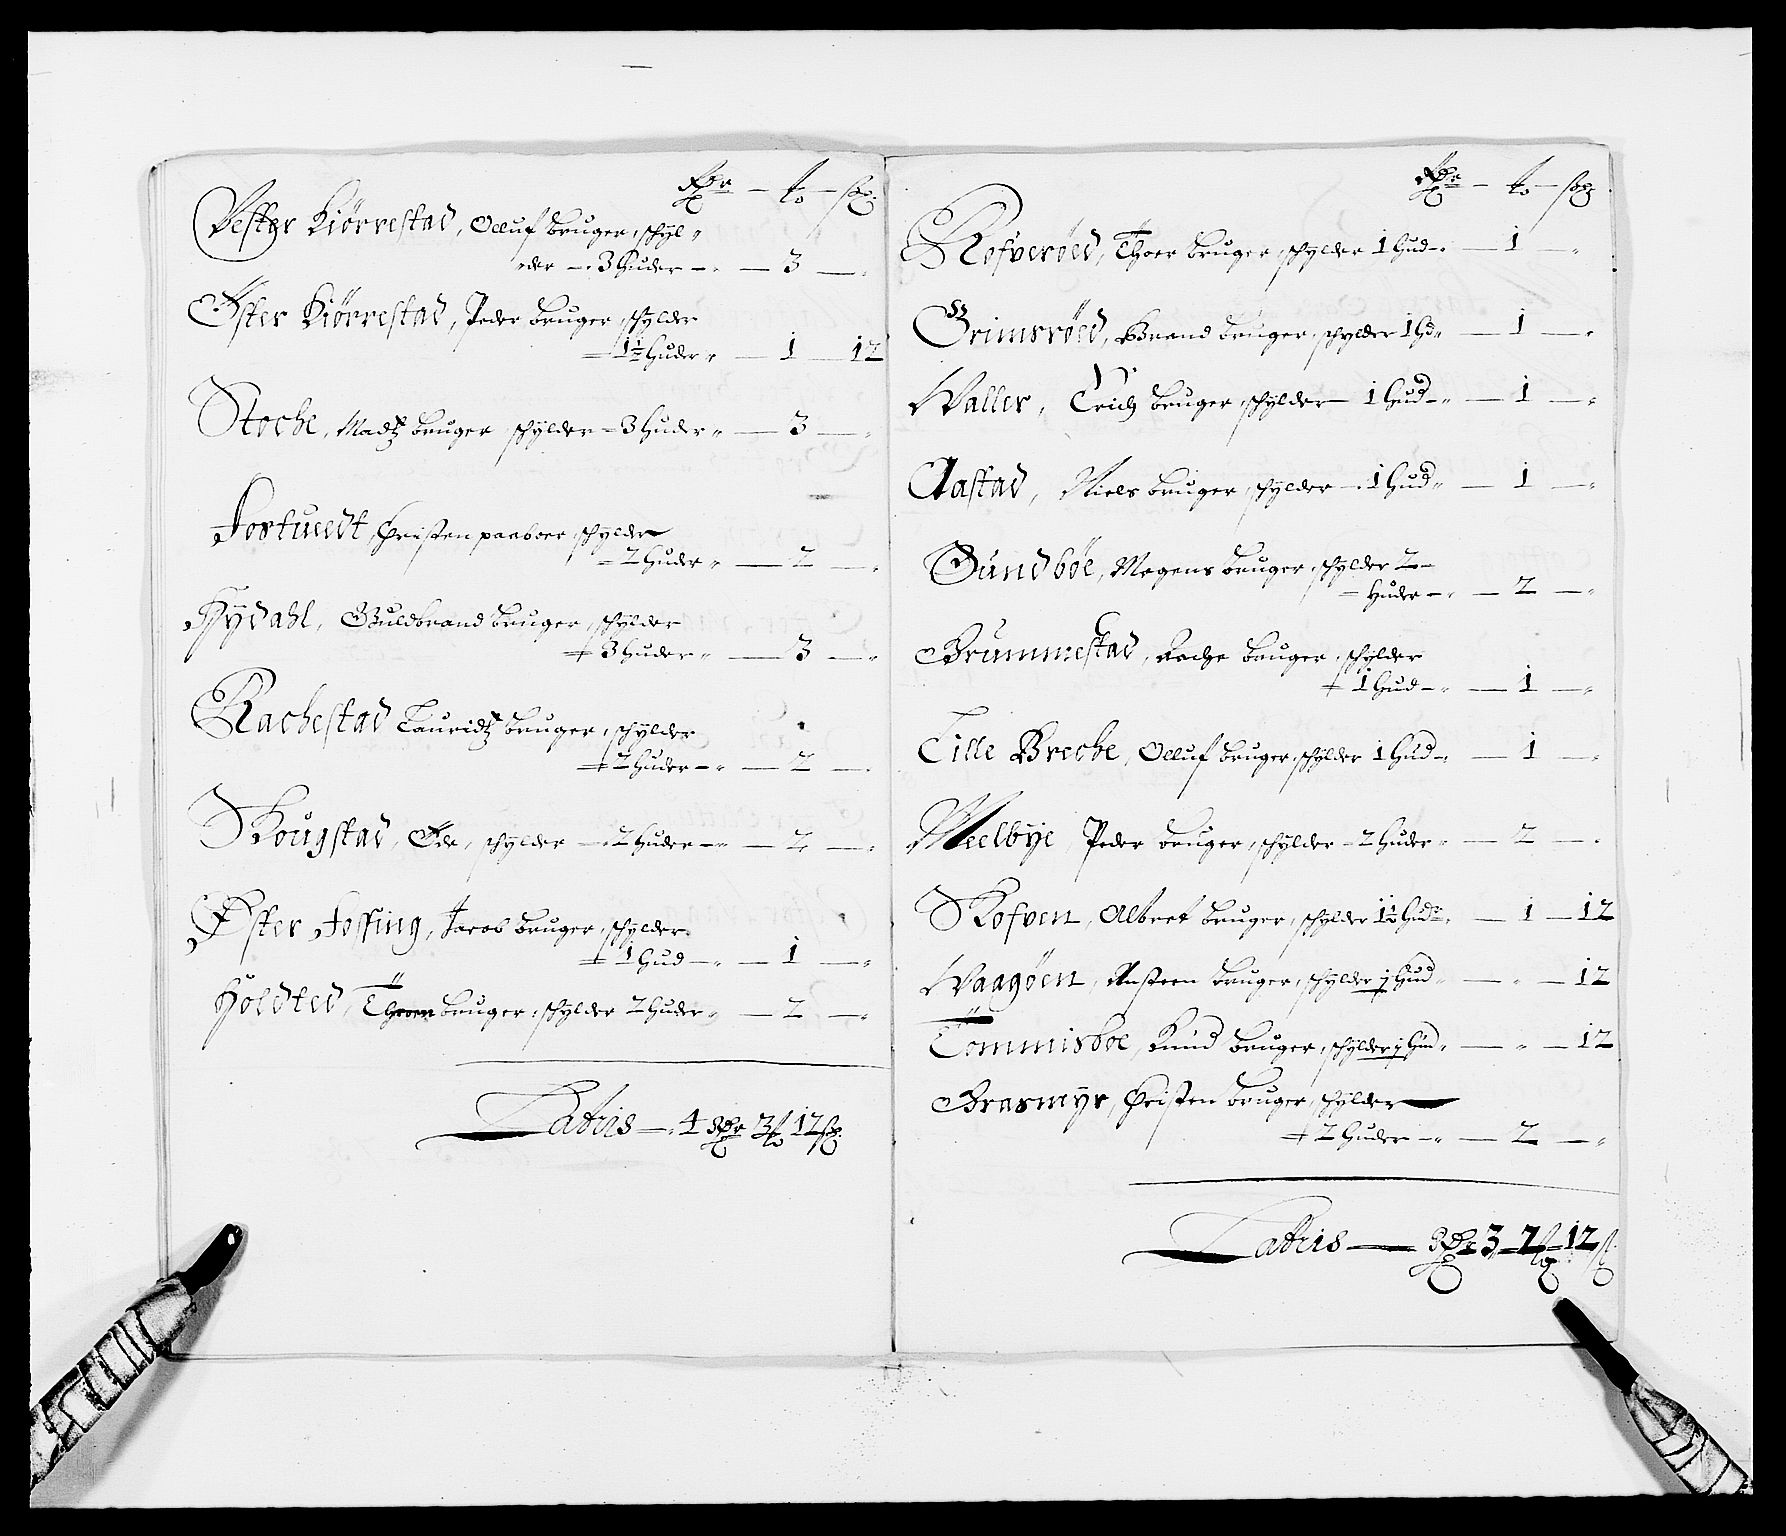 Rdr — to — sch
Vester Kiörrestad, Olluf bruger, schyl„
„der — 3 Huder — „ — 3 — „
Øster Kiörrestad, Peder bruger, schylder
— 1½ Huder „ — 1 — 12
Stoche, Madtz bruger schylder — 3 Huder „ — 3 — „
Tortuedt, Christen paaboer, schylder
— 2 Huder „ — 2 — „
Hydahl, Guldbrand bruger, schylder
3 Huder „ — 3 — „
Rachestad Lauridtz bruger, schylder
2 Huder — „ — 2 — „
Skougstad, Øde, schylder — 2 Huder — „ — 2 — „
Øster Jossing, Jacob bruger, schylder
1 Hud — „ — 1 — „
Holdted, bruger, schylder 2 Huder „ — 2 — „
Lateris — 4 Rdr 3 to 12 sch
Rdr — to — sch
Rofverøed, Thoer bruger, schylder 1 Hud — „ — 1 — „
Grimsrøed, Brand bruger, schylder 1 Hd „ — 1 — „
Waller, Erich bruger, schylder — 1 Hud — „ — 1 — „
Aastad, Niels bruger, schylder — 1 Hud „ — 1 — „
Gundbøe, Mogens bruger, schylder 2 —
— Huder — „ — 2 — „
Brummestad, bruger, schylder
1 Hud — „ — 1 — „
Lille Breche, Olluf bruger, schylder 1 Hud — „ — 1 — „
Meelbye, Peder bruger, schylder — 2 Huder „ — 2 — „
Skofven, Albret bruger, schylder 1½ Hud „ — 1 — 12
Waagøen, Ansteen bruger, schylder ½ Hud „ — „ — 12
Tommisboe, Knud bruger, schylder ½ Hud „ — „ — 12
Grasmyr, Christen bruger, schylder
2 Huder — „ — 2 — „
Lateris — Rdr 3 — 2 — 12